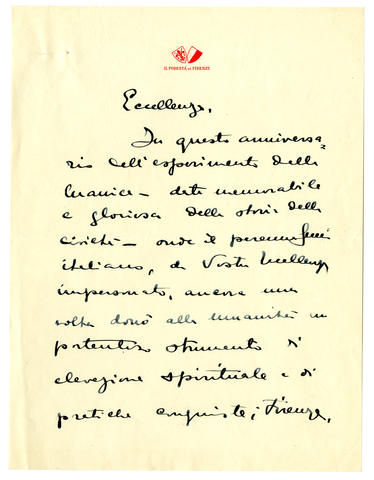 IL PODESTÀ DI FIRENZE
Eccellenza,
In questo anniversa=
rio dell'esperimento della
Manica - data memorabile
e gloriosa della storia della
civiltà - onde il perenne Genio
italiano, da Vostra Eccellenza
impersonato, ancora una
volta donò alla umanità un
portentoso strumento di
elevazione spirituale e di
pratiche conquiste, Firenze,